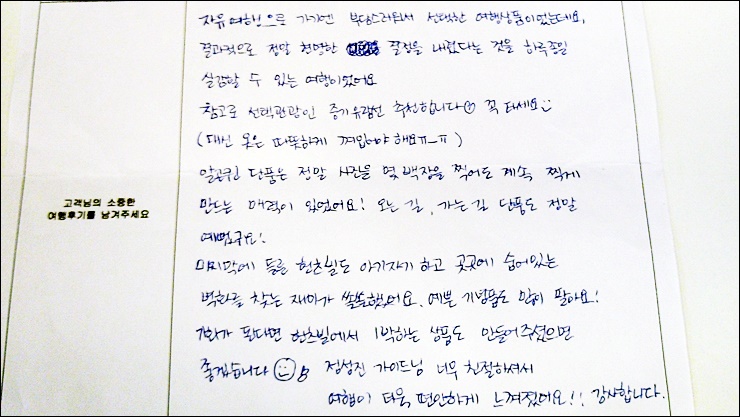 자유여행으로 가기엔 부담스러워서 선택한 여행상품이었는데요,
결과적으로 정말 현명한 결정을 내렸다는 것을 하루종일
실감할 수 있는 여행이었어요
참고로 선택관광인 증기유람선 추천합니다☺ 꼭 타세요 :)
(대신 옷은 따뜻하게 껴입어야 해요ㅠ_ㅠ)
알곤퀸 단풍은 정말 사진을 몇백장을 찍어도 계속 찍게
고객님의 소중한
여행후기를 남겨주세요
만드는 매력이 있었어요! 오는길, 가는길 단풍도 정말
예뻤구요!
마지막에 들른 헌츠빌도 아기자기 하고 곳곳에 숨어있는
벽화를 찾는 재미가 쏠쏠했어요. 예쁜 기념품도 많이 팔아요!
기회가 된다면 헌츠빌에서 1박하는 상품도 만들어주셨으면
좋겠습니다 ☺♪ 정성진 가이드님 너무 친절하셔서
여행이 더욱 편안하게 느껴졌어요!! 감사합니다.